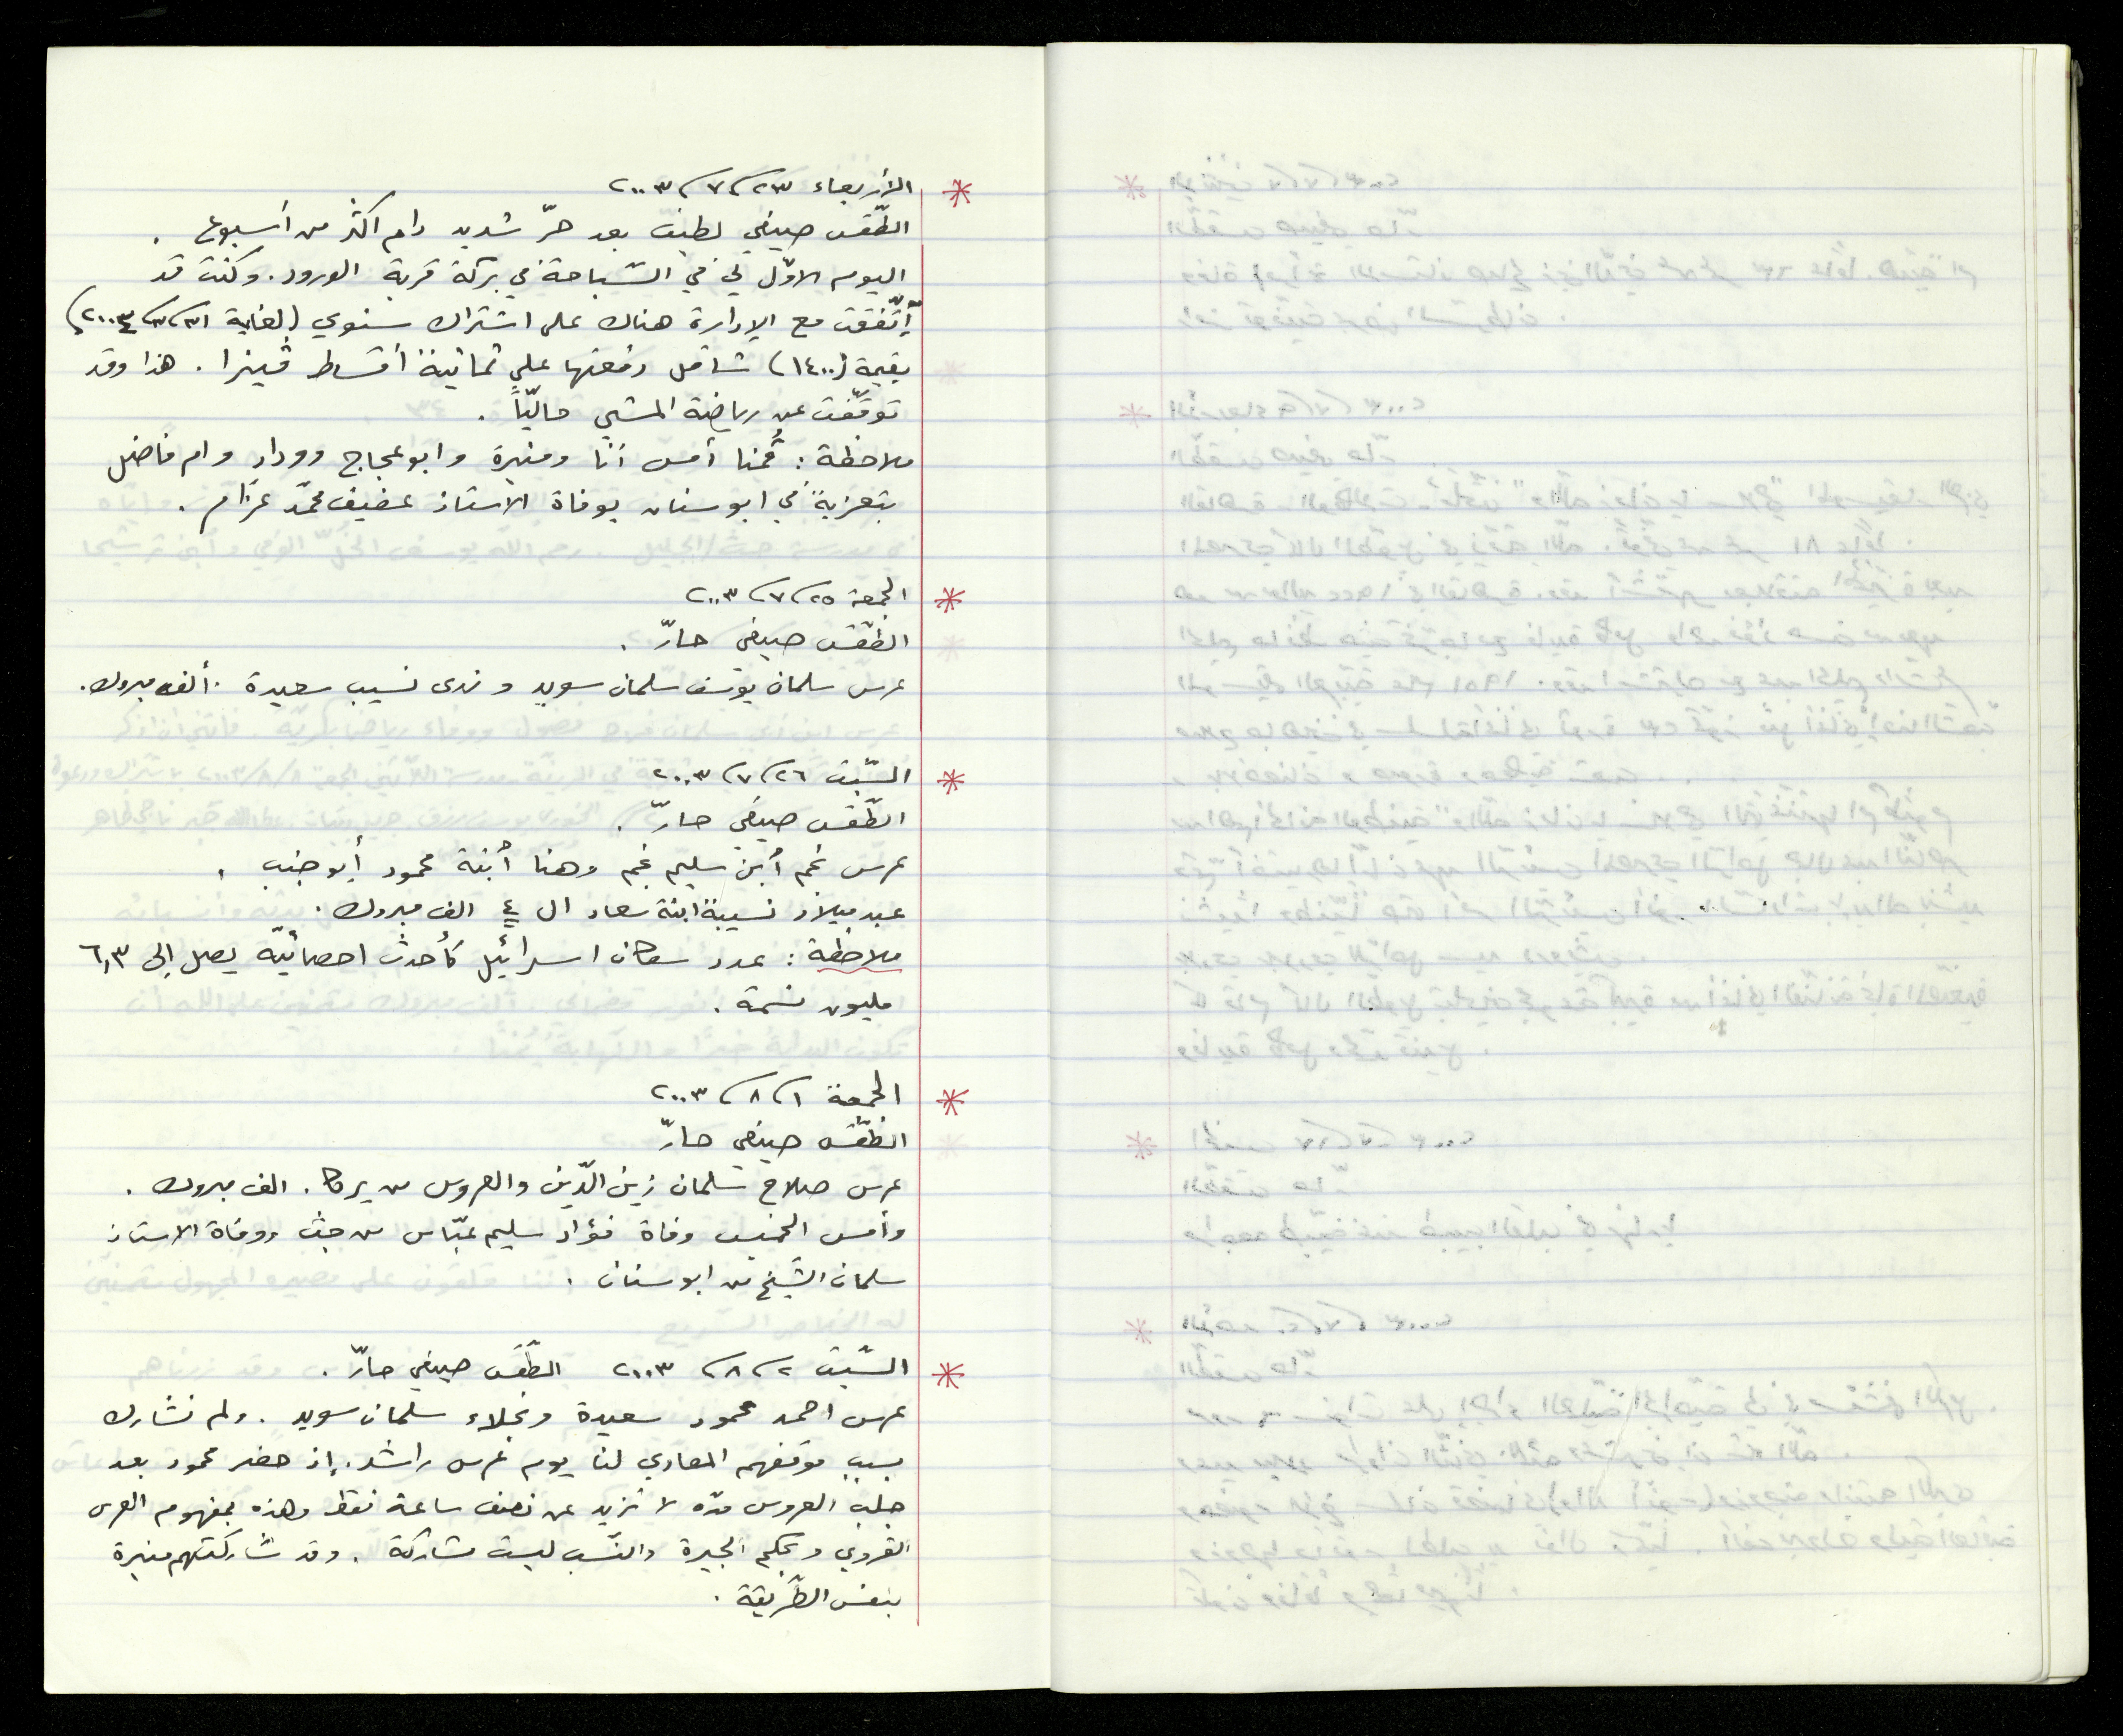 * الأربعاء ٢٣/٧/٢٠٠٣
الطّقس صيفي لطيف بعد حرّ شديد دام اكثر من أسبوع .
اليوم الاوّل لي في السّباحة في بركة قرية الورود . وكنت قد
أتّفقت مع الإدارة هناك على اشتراك سنوي (لغاية ٣١/٣/٢٠٠٤)
بقيمة (١٤٠٠) شاقل دفعتها على ثمانية أقساط ڤيزا . هذا وقد
توقّفت عن رياضة المشي حاليّاً .
ملاحظة : قُمنا أمس أنا ومنيرة وابو عجاج ووداد وام فاضل
بتعزية في ابوسنان بوفاة الاستاذ عفيف محمّد عزّام .
* الجمعة ٢٥/٧/٢٠٠٣
الطّقس صيفي حارّ .
عرس سلمان يوسف سلمان سويد وندى نسيب سعيدة . ألف مبروك .
* السّبت ٢٦/٧/٢٠٠٣
الطّقس صيفي حارّ .
عرس نجم أبن سليم نجم وهنا أبنة محمود أبو جنب .
عيد ميلاد نسيبة ابنة سعاد ال ٤ الف مبروك .
ملاحظة : عدد سكان اسرائيل كأحدث احصائيّة يصل إلى ٦,٣
مليون نسمة .
* الجمعة ١/٨/٢٠٠٣
الطّقس صيفي حارّ
عرس صلاح سلمان زين الدّين والعروس من يركا . الف مبروك .
وأمس الخميس وفاة فؤاد سليم عبّاس من جثّ ووفاة الاستاذ
سلمان الشّيخ من ابوسنان .
* السّبت ٢/٨/٢٠٠٣ الطّقس صيفي حارّ .
عرس احمد محمود سعيدة ونجلاء سلمان سويد . ولم نشارك
بسبب موقفهم المعادي لنا يوم عرس راشد . إذ حضر محمود بعد
جلب العروس مدّه لا تزيد عن نصف ساعة فقط وهذه بمفهوم العرس
القروي وبحكم الجيرة والنّسب ليست مشاركة . وقد شاركتهم منيرة
بنفس الطّريقة .